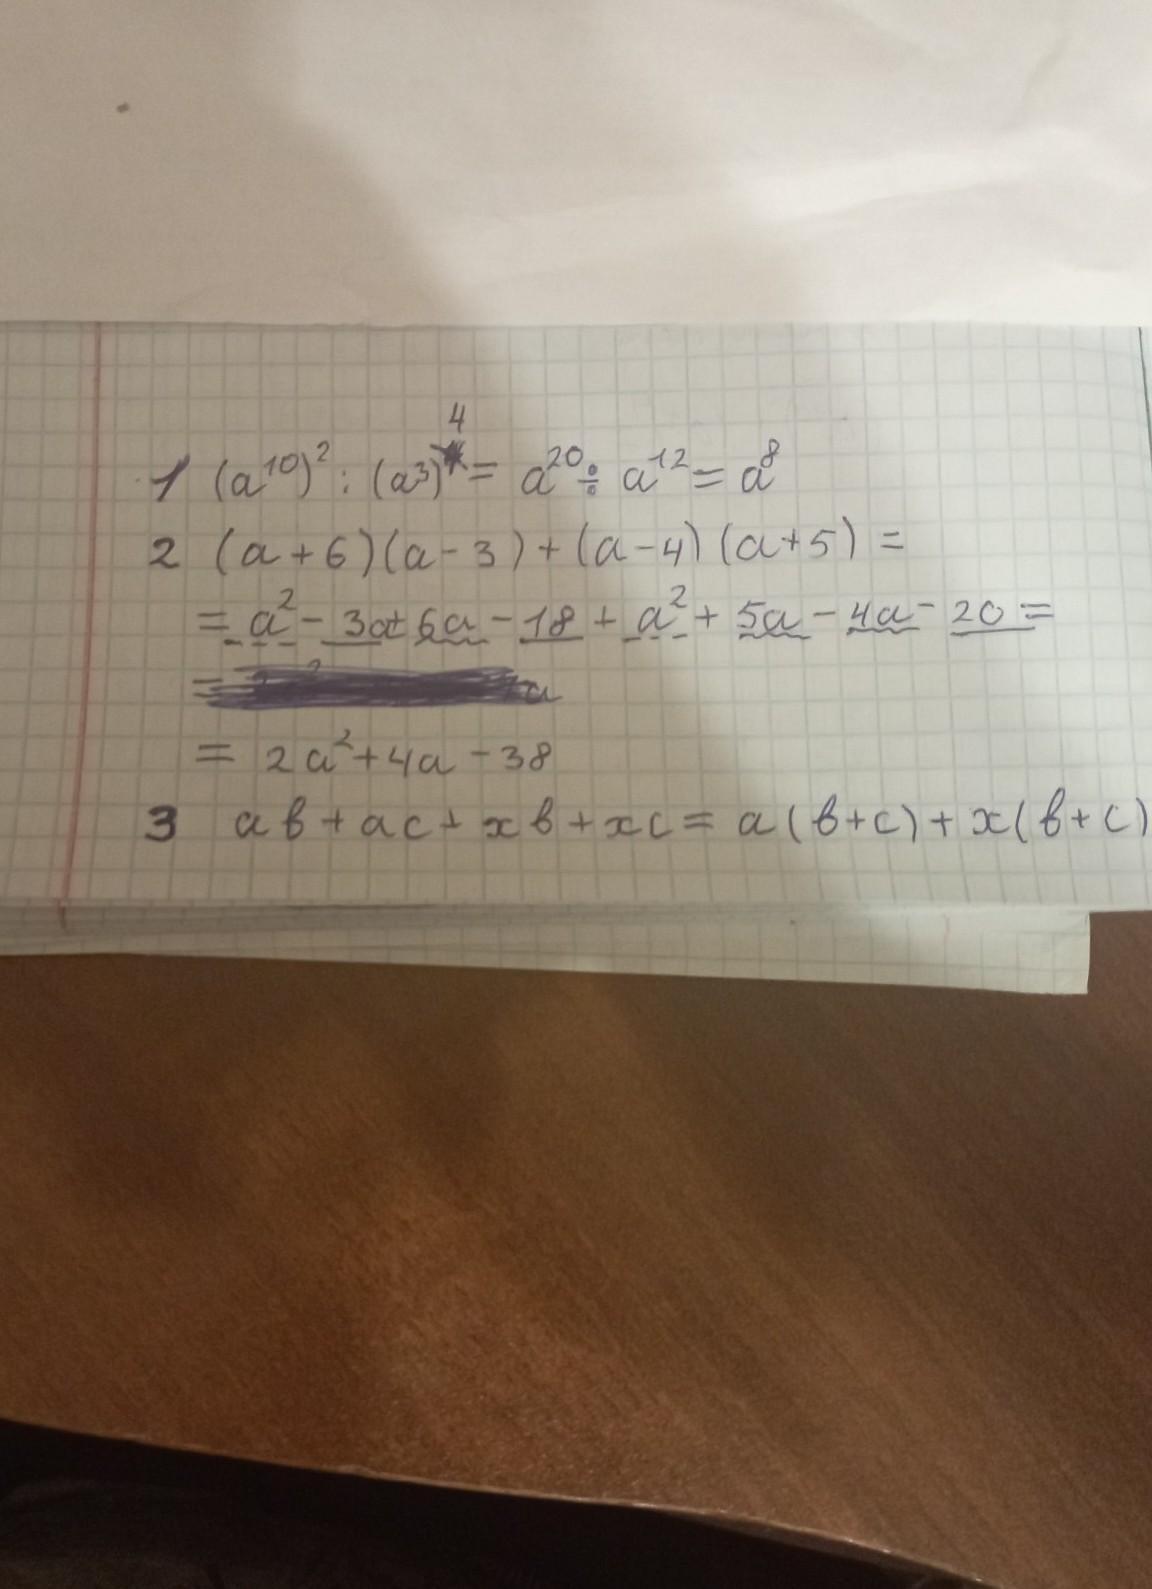 1 (a¹⁰)² : (a³)⁴ = a²⁰ ÷ a¹² = a⁸
2 (a+6)(a-3)+(a-4)(a+5)=
= a² - 3a + 6a - 18 + a² + 5a - 4a - 20 =
= 2a² + 4a - 38
3 ab + ac + xb + xc = a(b+c) + x(b+c)